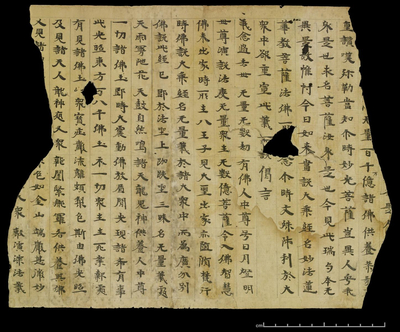 量百千億諸佛供養恭
重讚歎彌勒當知尒時妙光菩薩豈異人乎我
身是也求名菩薩汝身是也今見此瑞与本无
異是故惟忖今日如來當說大乘經名妙法蓮
華教菩薩法佛念尒時文殊師利於大
眾中欲重宣此義說偈言
我念過去世无量无數劫有佛人中尊号日月燈明
世尊演說法度无量眾生无數億菩薩令入佛智慧
佛未出家時所生八王子見大聖出家亦隨脩梵行
時佛說大乘經名无量義於諸大眾中而為廣分別
佛說此經已即於法坐上跏趺坐三昧名无量義處
天雨曼陀花天鼓自然鳴諸天龍鬼神供養人中尊
一切諸佛土即時大震動佛放眉間光現諸希有事
此光照東方万八千佛土示一切眾生生死業報處
有見諸佛土以眾寶莊嚴流離頗梨色斯由佛光照
及見諸天人龍神夜叉眾乾闥緊那羅各供養其佛
又見諸色如金山端嚴甚微妙
眾敷演深法義